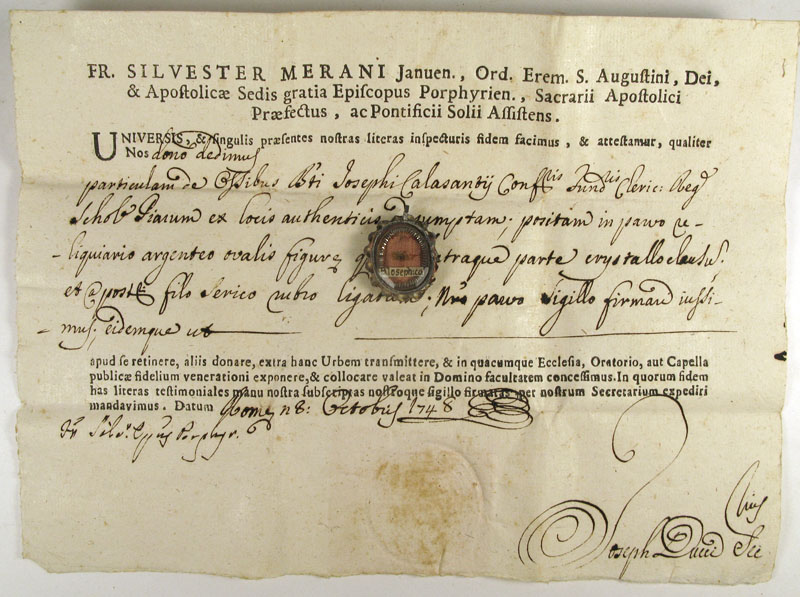 FR. SILVESTER MERANI Januen., Ord. Erem. S. Augustini, Dei,
& Apostolicæ Sedis gratia Episcopus Porphyrien., Sacrarii Apostolici
Præfectus, ac Pontificii Solii Assistens.
UNIVERSIS, & singulis præsentes nostras literas inspecturis fidem facimus, & attestamur, qualiter
Nos dono dedimus
particulam de Ossibus Bti Josephi Calasantij Conffis Fundtis Cleric: Reg
Schol Piarum ex locis authenticis positam in parvo re-
liquiario argenteo ovalis figuræ utraque parte crystallo
et à post filo serico rubro ligatum; Nro parvo sigillo firmari iussi-
mus; eidemque ut
Josephi Ca
apud se retinere, aliis donare, extra hanc Urbem transmittere, & in quacumque Ecclesia, Oratorio, aut Capella
publicæ fidelium venerationi exponere, & collocare valeat in Domino facultatem concessimus. In quorum fidem
has literas testimoniales manu nostra subscriptas nostroque sigillo firmatas per nostrum Secretarium expediri
mandavimus. Datum Romæ 8: Octobris 1748
Fr Silvr Epus Porphyr.
Joseph Secrius